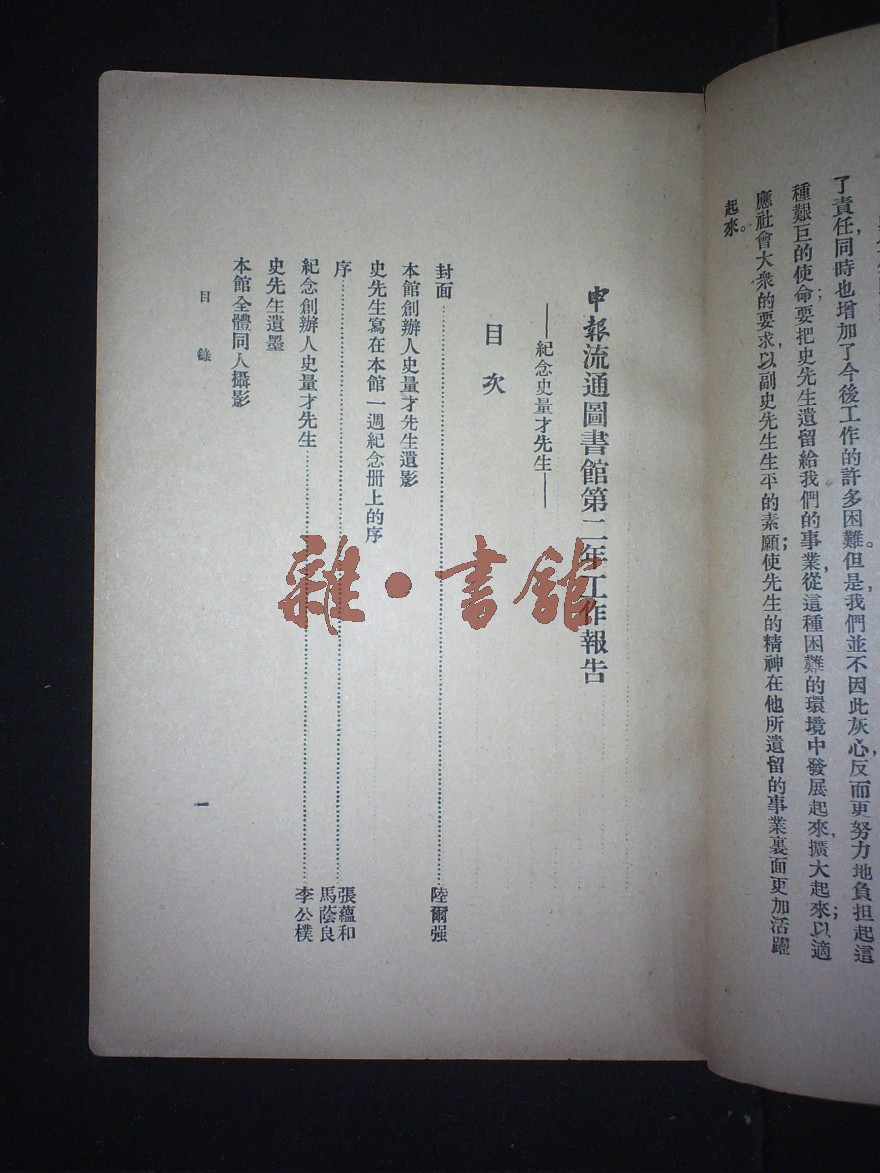 了責任，同時也增加了今後工作的許多困難。但是，我們並不因此灰心，反而更努力地負担起這
種艱巨的使命；要把史先生遺留給我們的事業，從這種困難的環境中發展起來，擴大起來；以適
應社會大衆的要求，以副史先生生平的素願；使先生的精神在他所遺留的事業裏面更加活躍
起來。
申報流通圖書館第二年工作報告
——紀念史量才先生——
目次
封面……陸爾强
本館創辦人史量才先生遺影
史先生寫在本館一週紀念册上的序
序……張蘊和
馬蔭良
紀念創辦人史量才先生……李公樸
史先生遺墨
本館全體同人攝影
目錄
一
雜·書館